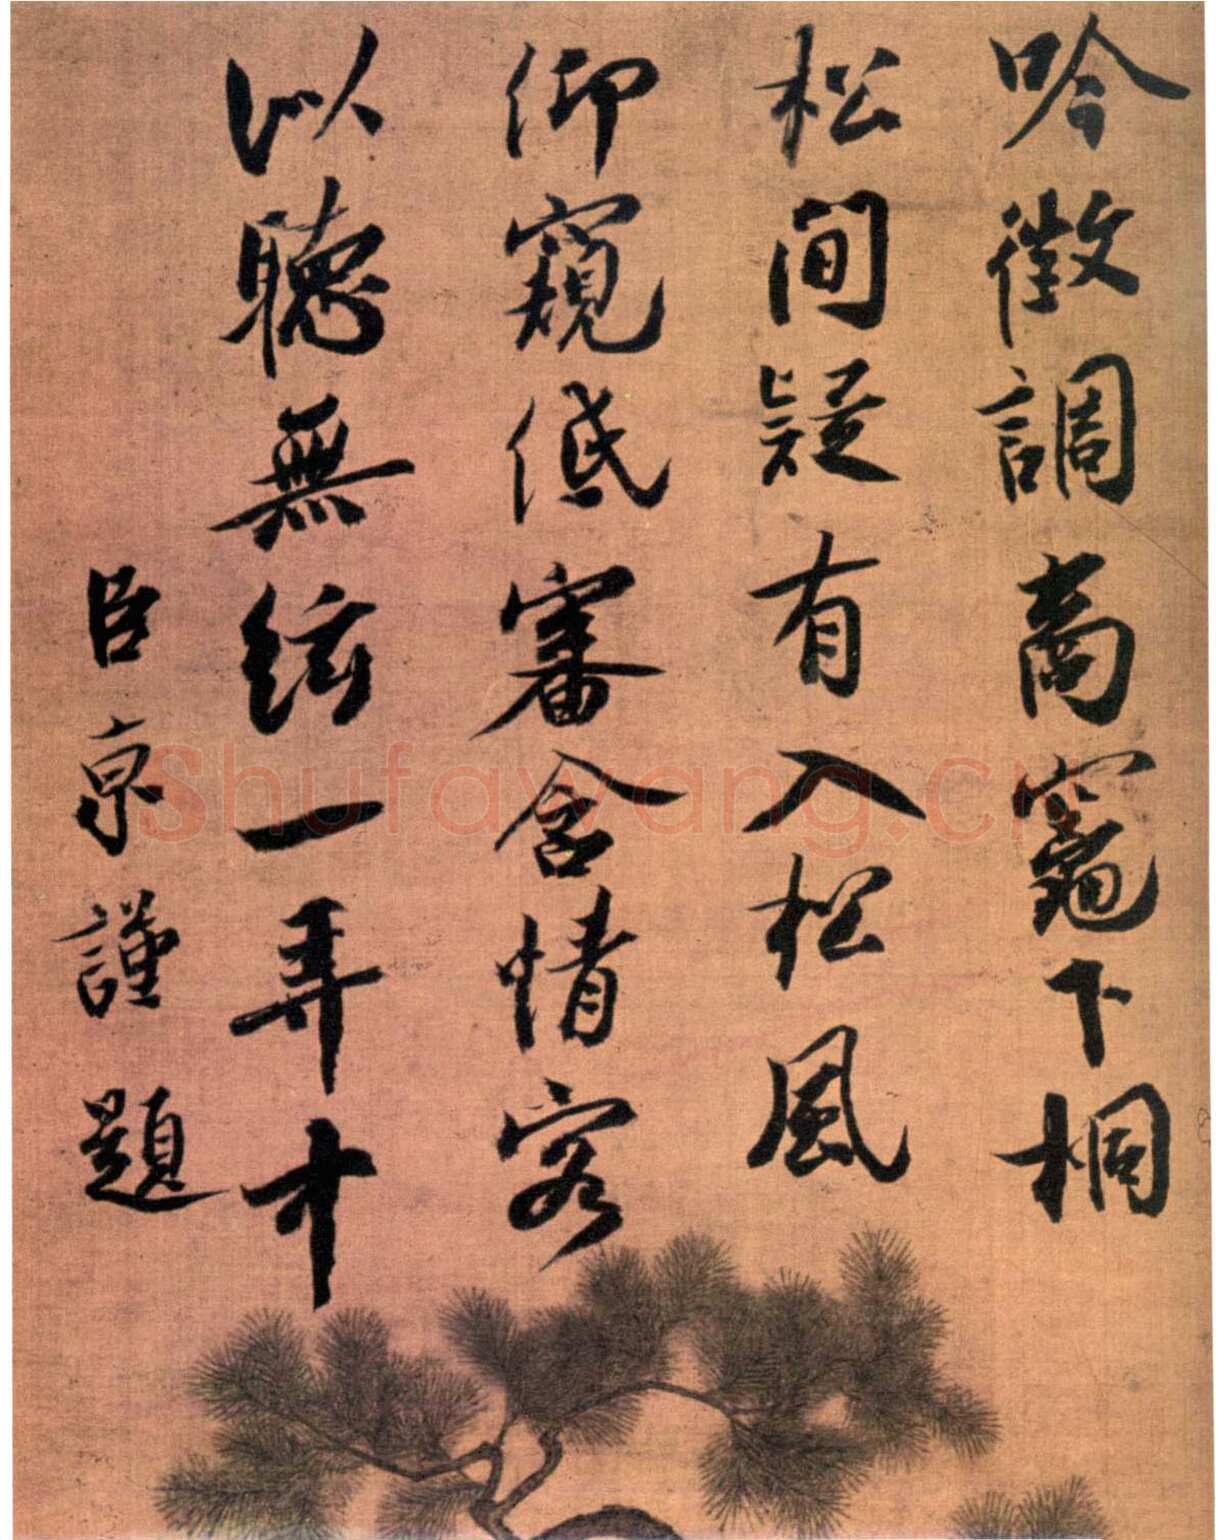 吟徵調商竈下桐
松間疑有入松風
仰窺低審含情客
以聽無絃一弄中
臣京謹題
Shufawang.cn